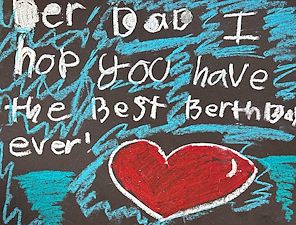 Der Dad I
hop you have
the Best BerthDay
ever!